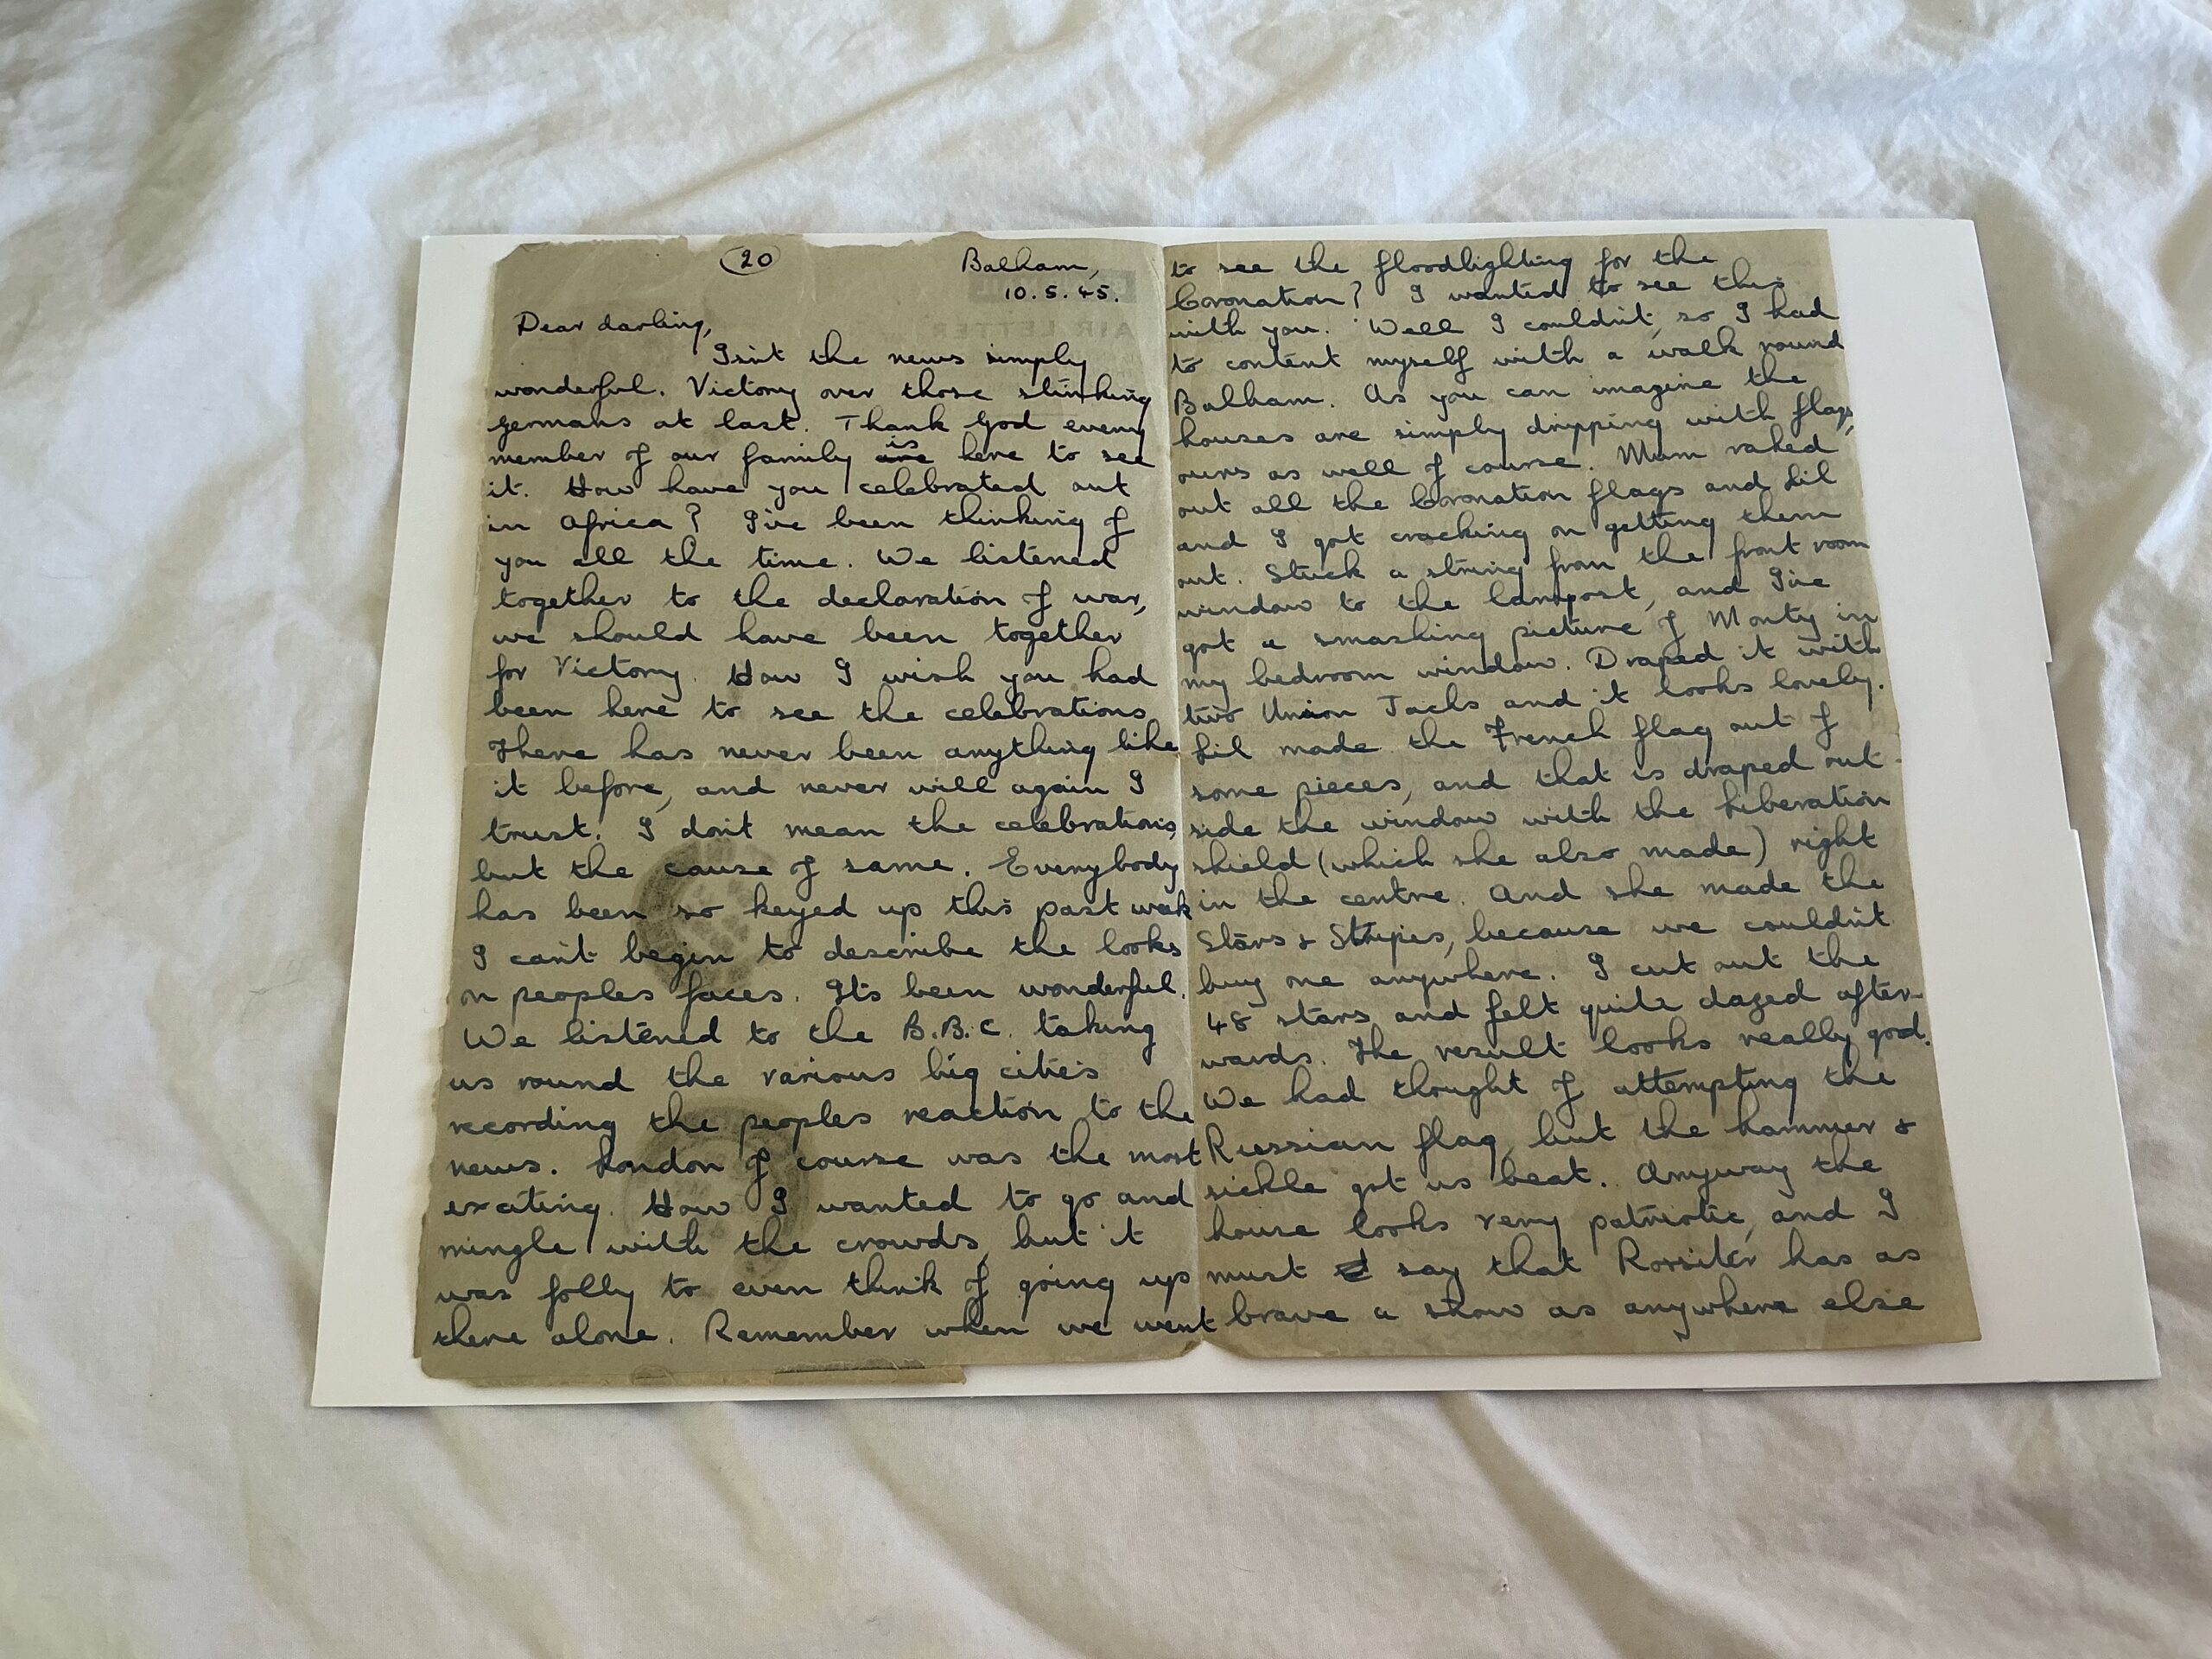 20
Balham,
10.5.45.
Dear darling,
Isn't the news simply
wonderful. Victory over those stinking
germans at last. Thank God every
member of our family are is here to see
it. How have you celebrated out
in Africa? I've been thinking of
you all the time. We listened
together to the declaration of war,
we should have been together
for Victory. How I wish you had
been here to see the celebrations
There has never been anything like
it before, and never will again I
trust. I don't mean the celebrations,
but the cause of same. Everybody
has been so keyed up this past week
I can't begin to describe the looks
on peoples faces. Its been wonderful.
We listened to the B.B.C. taking
us round the various big cities
recording the peoples reaction to the
news. London of course was the most
exciting. How I wanted to go and
mingle with the crowds, but it
was folly to even think of going up
there alone. Remember when we went
to see the floodlighting for the
Coronation? I wanted to see this
with you. Well I couldn't, so I had
to content myself with a walk round
Balham. As you can imagine the
houses are simply dripping with flags,
ours as well of course. Mum raked
out all the Coronation flags and Lil
and I got cracking on getting them
out. Stuck a string from the front room
window to the lampost, and I've
got a smashing picture of Monty in
my bedroom window. Draped it with
two Union Jacks and it looks lovely.
Lil made the French flag out of
some pieces, and that is draped out-
side the window with the Liberation
shield (which she also made) right
in the centre. And she made the
Stars & Stripes, because we couldn't
buy one anywhere. I cut out the
48 stars and felt quite dazed after-
wards. The result looks really good.
We had thought of attempting the
Russian flag, but the hammer &
sickle got us beat. Anyway the
house looks very patriotic, and I
must say that Rossiter has as
brave a show as anywhere else